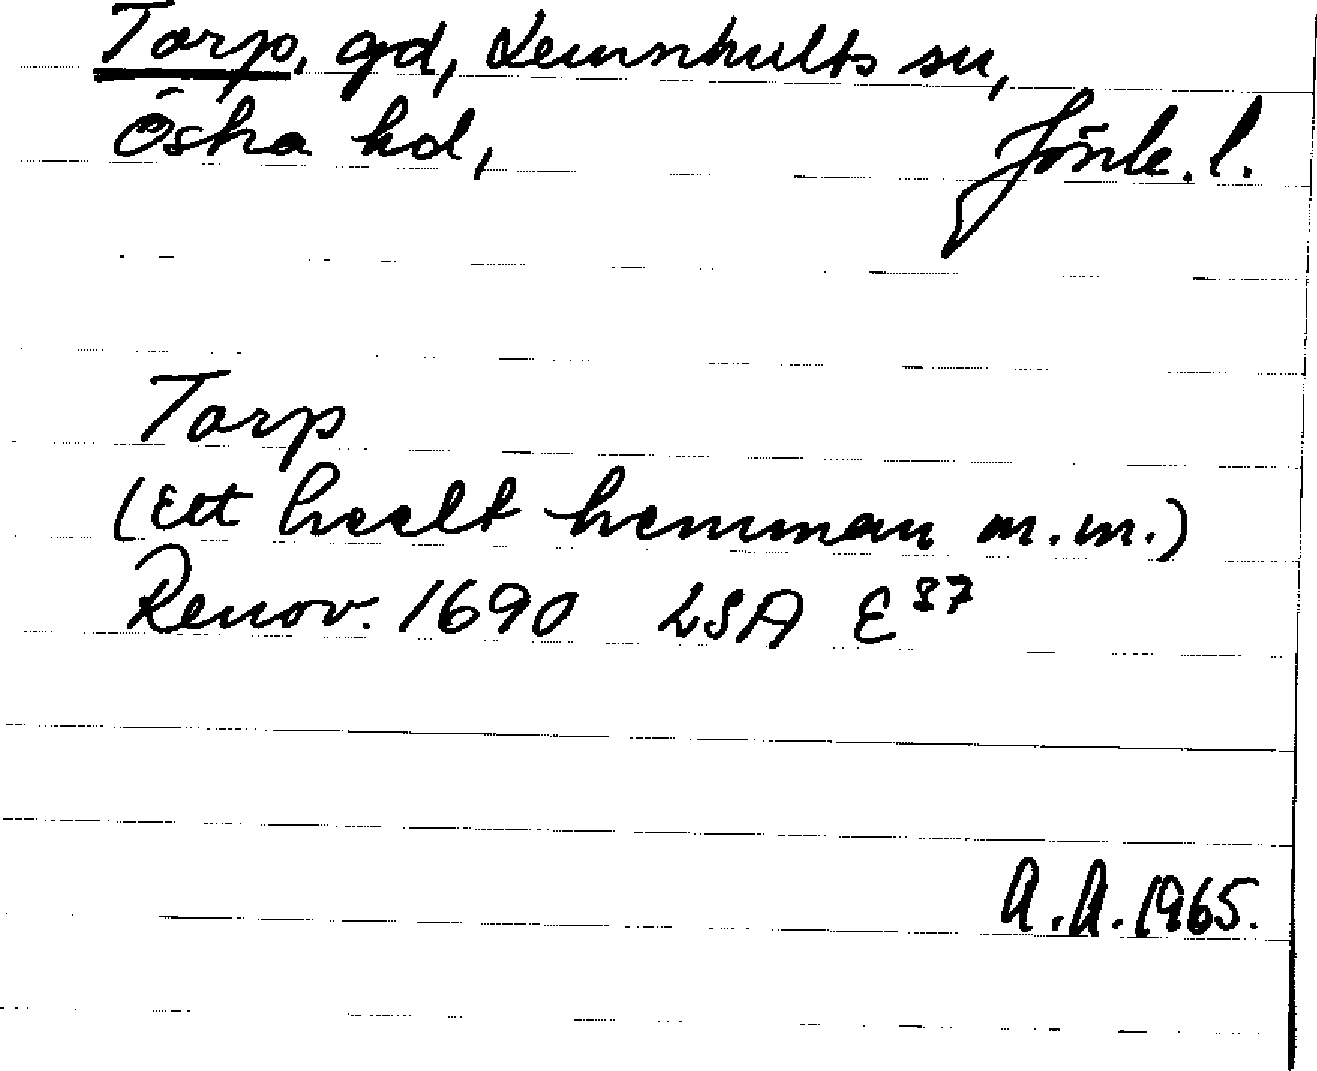 Torp, gd, Lemnhults sn,
Östra hd, Jönk. l.
Torp
(Ett heelt hemman m.m.)
Renov. 1690 LSA E 37
A.A. 1965.